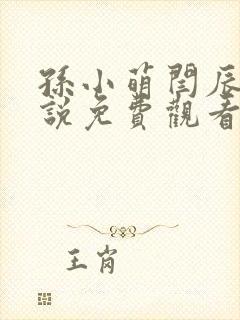 孫小萌閆辰
說免費觀看
王肖